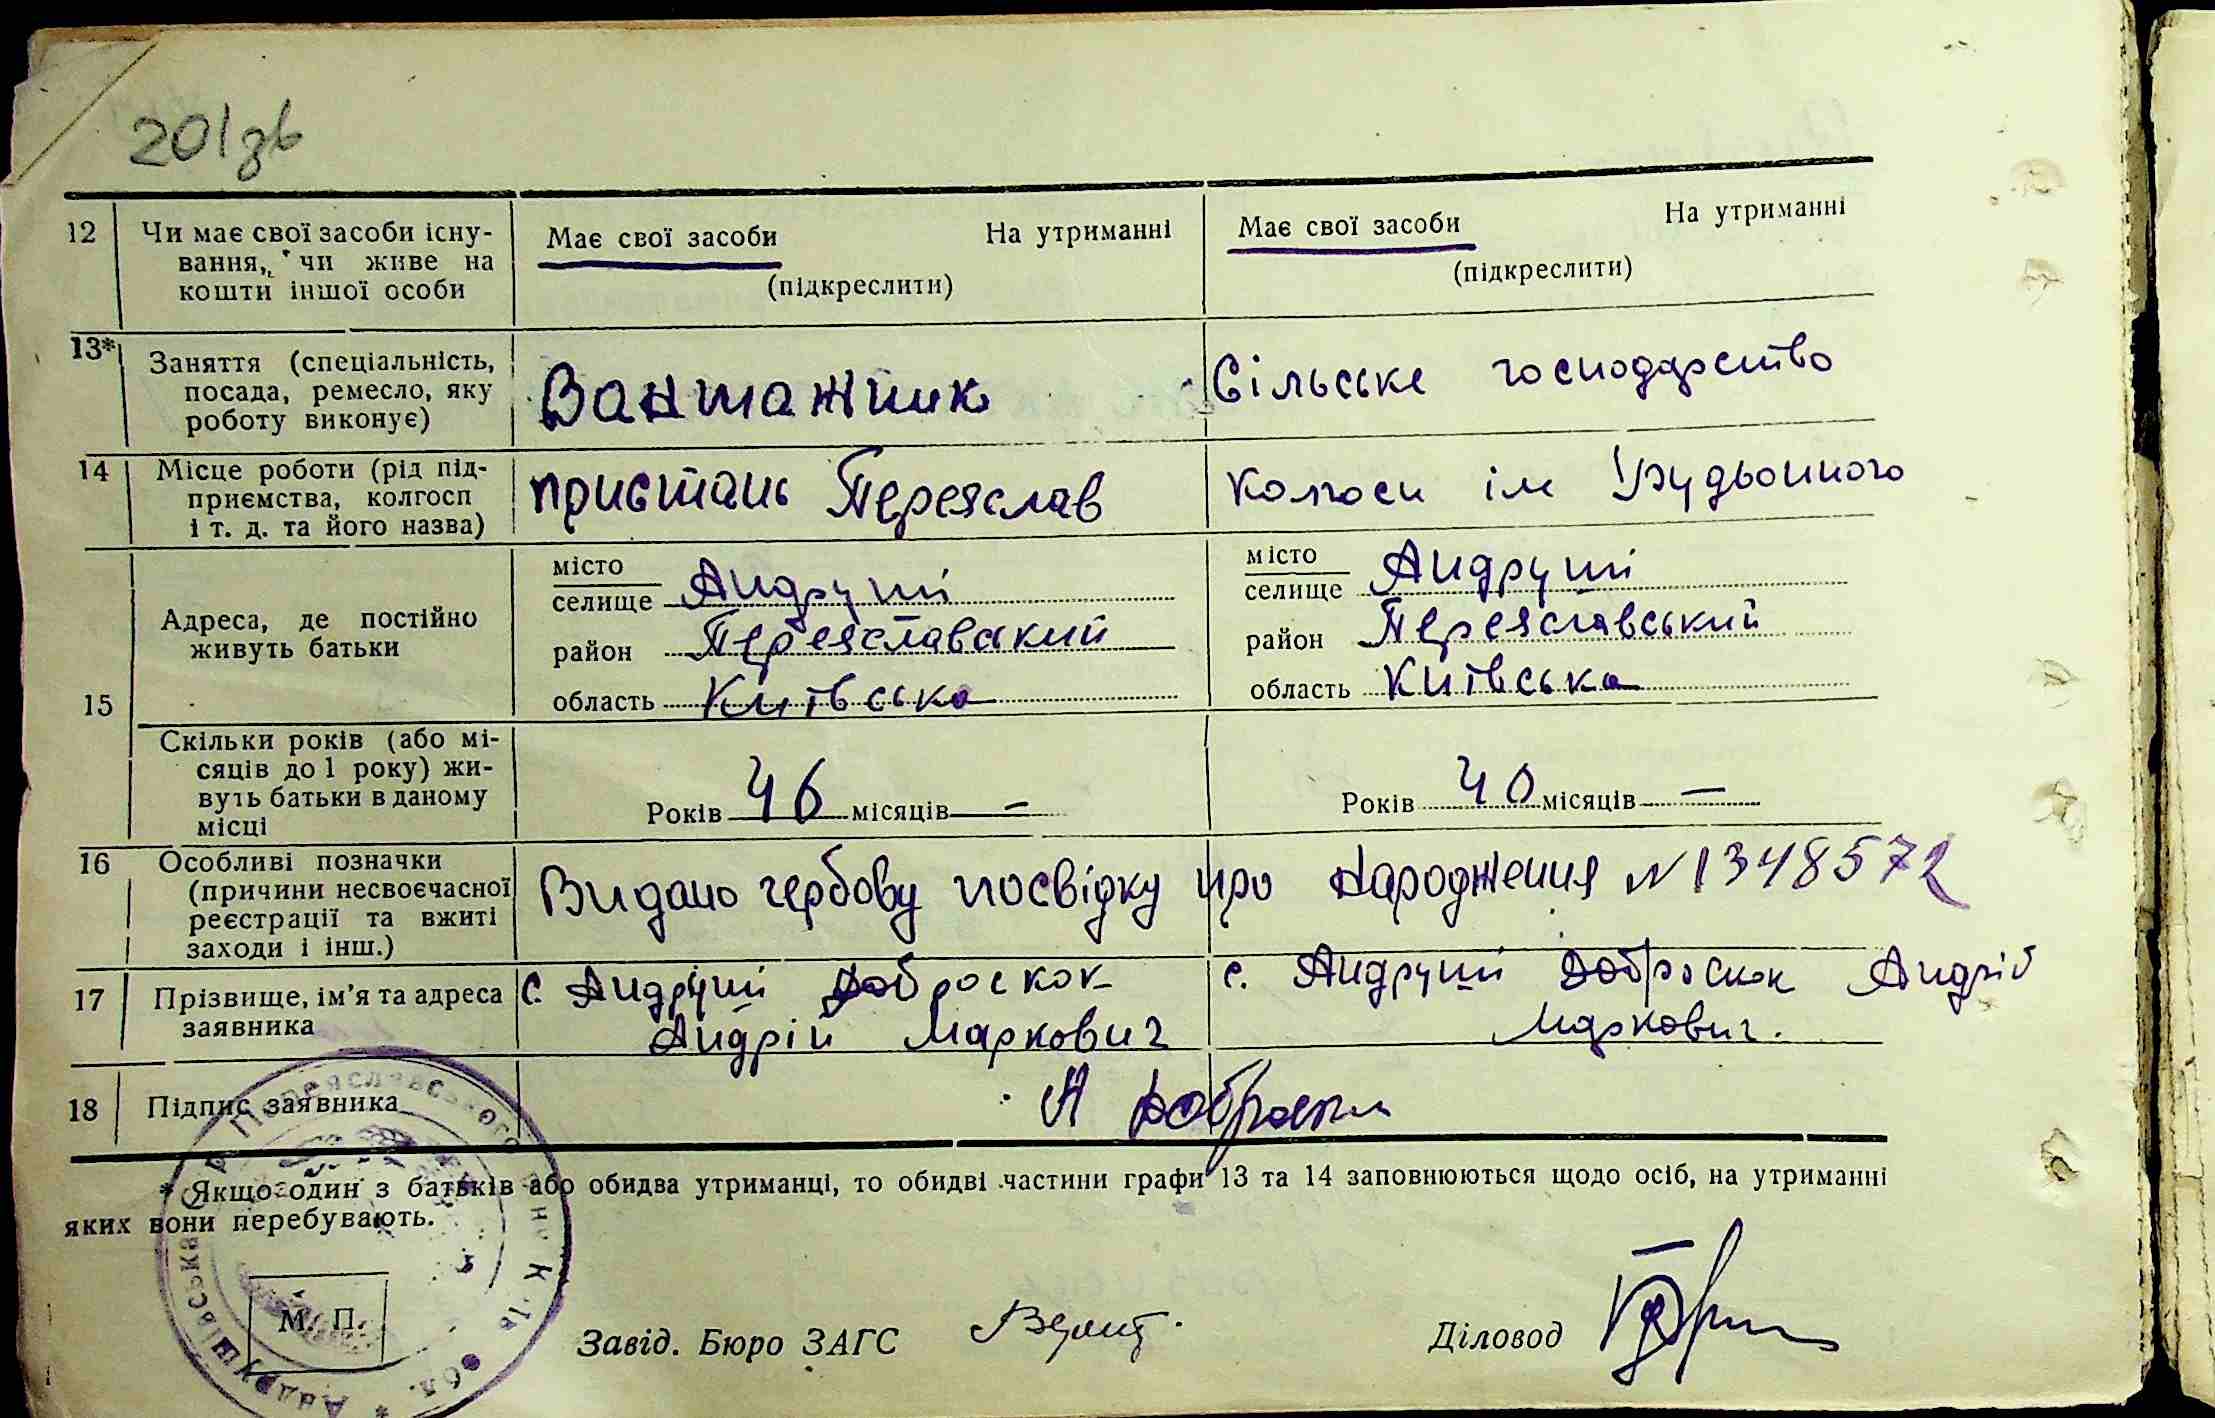 201зв
12 Чи має свої засоби існу- Має свої засоби На утриманні Має свої засоби На утриманні
вання, чи живе на (підкреслити) (підкреслити)
кошти іншої особи
13* Заняття (спеціальність,
посада, ремесло, яку Вантажник Сільське господарство
роботу виконує)
14 Місце роботи (рід під-
приємства, колгосп пристань Переяслав колгосп ім Будьонного
і т. д. та його назва)
15 Адреса, де постійно
живуть батьки
місто місто
селище Андруші селище Андруші
район Переяславський район Переяславський
область Київська область Київська
Скільки років (або мі-
сяців до 1 року) жи-
вуть батьки в даному Років 46 місяців — Років 40 місяців —
місці
16 Особливі позначки
(причини несвоєчасної Видано гербову посвідку про народження N 1348572
реєстрації та вжиті
заходи і інш.)
17 Прізвище, ім'я та адреса с. Андруші Доброскок с. Андруші Доброскок Андрій
заявника Андрій Маркович Маркович.
18 Підпис заявника А Доброскок
* Якщо один з батьків або обидва утриманці, то обидві частини графи 13 та 14 заповнюються щодо осіб, на утриманні
яких вони перебувають.
М. П.
Завід. Бюро ЗАГС Діловод